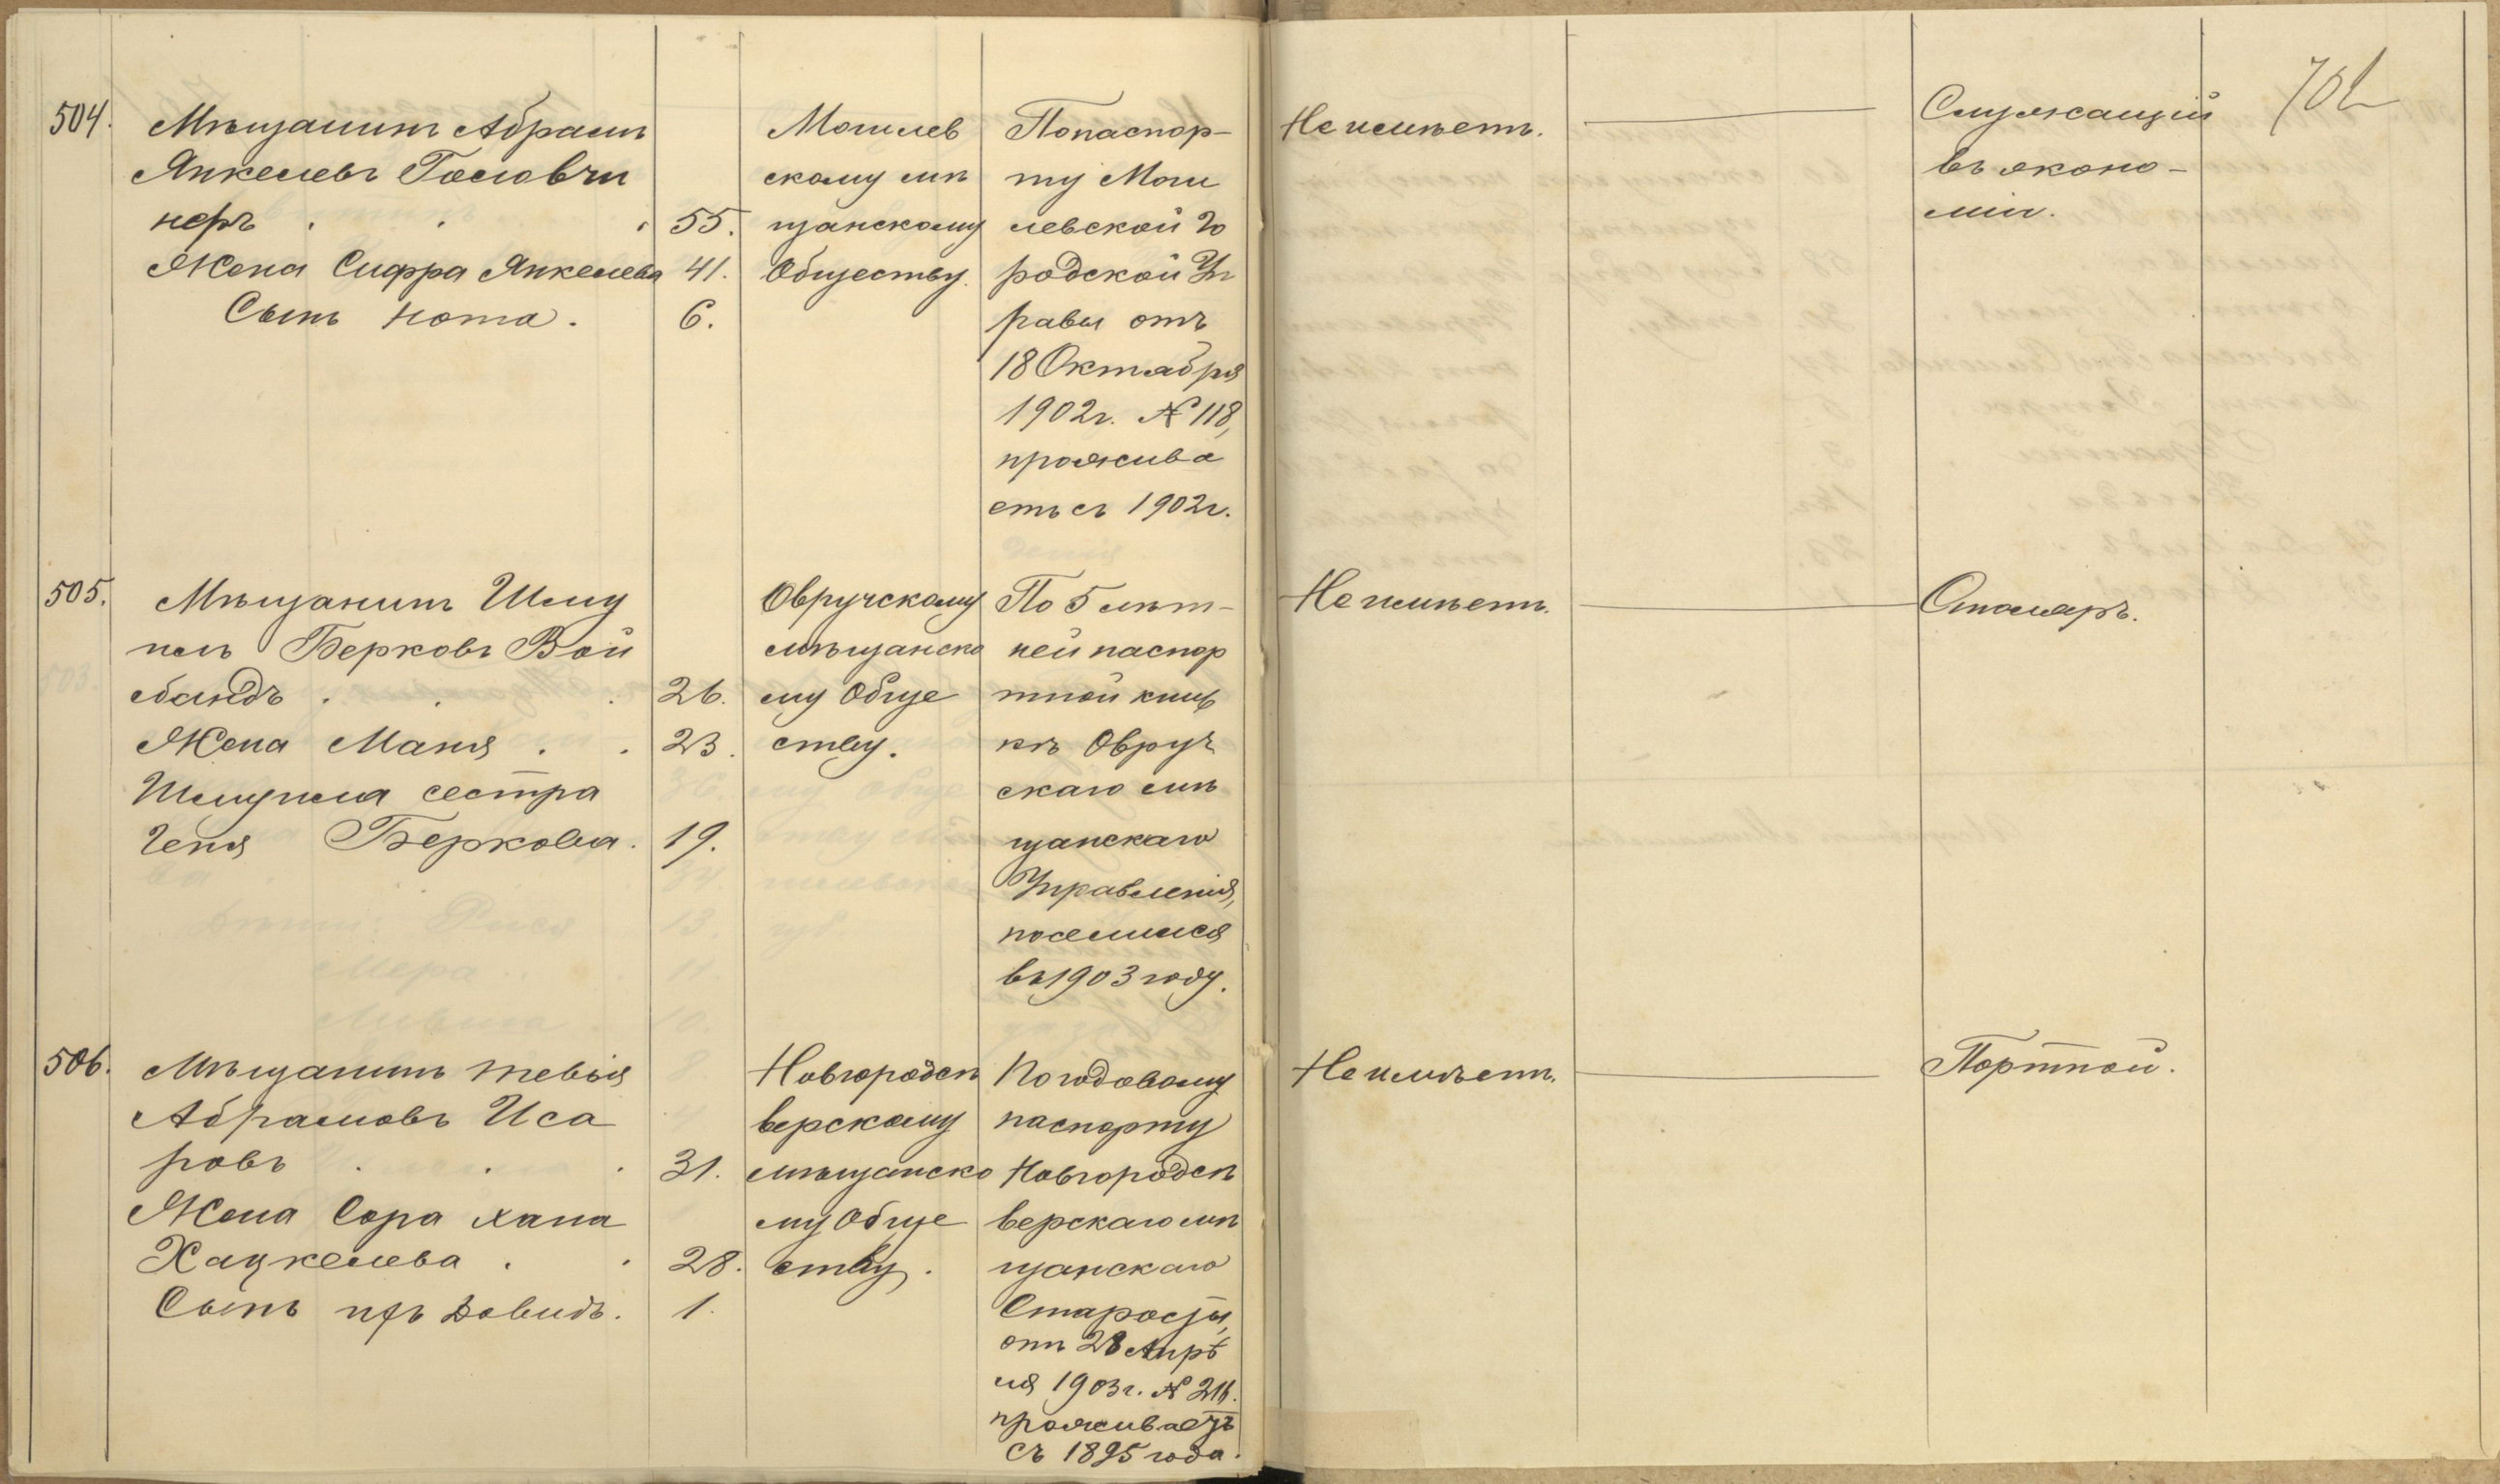 504.
Мѣщанинъ Абрамъ
Янкелевъ Головчи
неръ . . . 55.
Жена Сифра Янкелева 41.
Сынъ Нота. 6.
Могилев
скому мѣ
щанскому
Обществу.
По паспор-
ту Моги
левской Го
родской Уп
равы отъ
18 Октября
1902г. № 118,
прожива
етъ съ 1902г.
Не имѣетъ.
Служащій
въ эконо-
міи.
505.
Мѣщанинъ Шму
илъ Берковъ Вой
бандъ . . . 26.
Жена Маня . . 23.
Шмуила сестра
Геня Беркова. 19.
Овручскому
мѣщанско
му Обще
ству.
По 5 лѣт-
ней паспор
тной книж
кѣ Овруч
скаго мѣ
щанскаго
Управленія,
поселился
въ 1903 году.
Не имѣетъ.
Столяръ.
506.
Мѣщанинъ Тевья
Абрамовъ Иса
ровъ . . . 31.
Жена Сора Хана
Хацкелева . . 28.
Сынъ ихъ Довидъ. 1.
Новгородсѣ
верскому
мѣщанско
му Обще
ству.
По годовому
паспорту
Новгородсѣ
верскаго мѣ
щанскаго
Старосты,
отъ 28 Апрѣ
ля 1903г. № 216.
проживаетъ
съ 1895 года.
Не имѣетъ.
Портной.